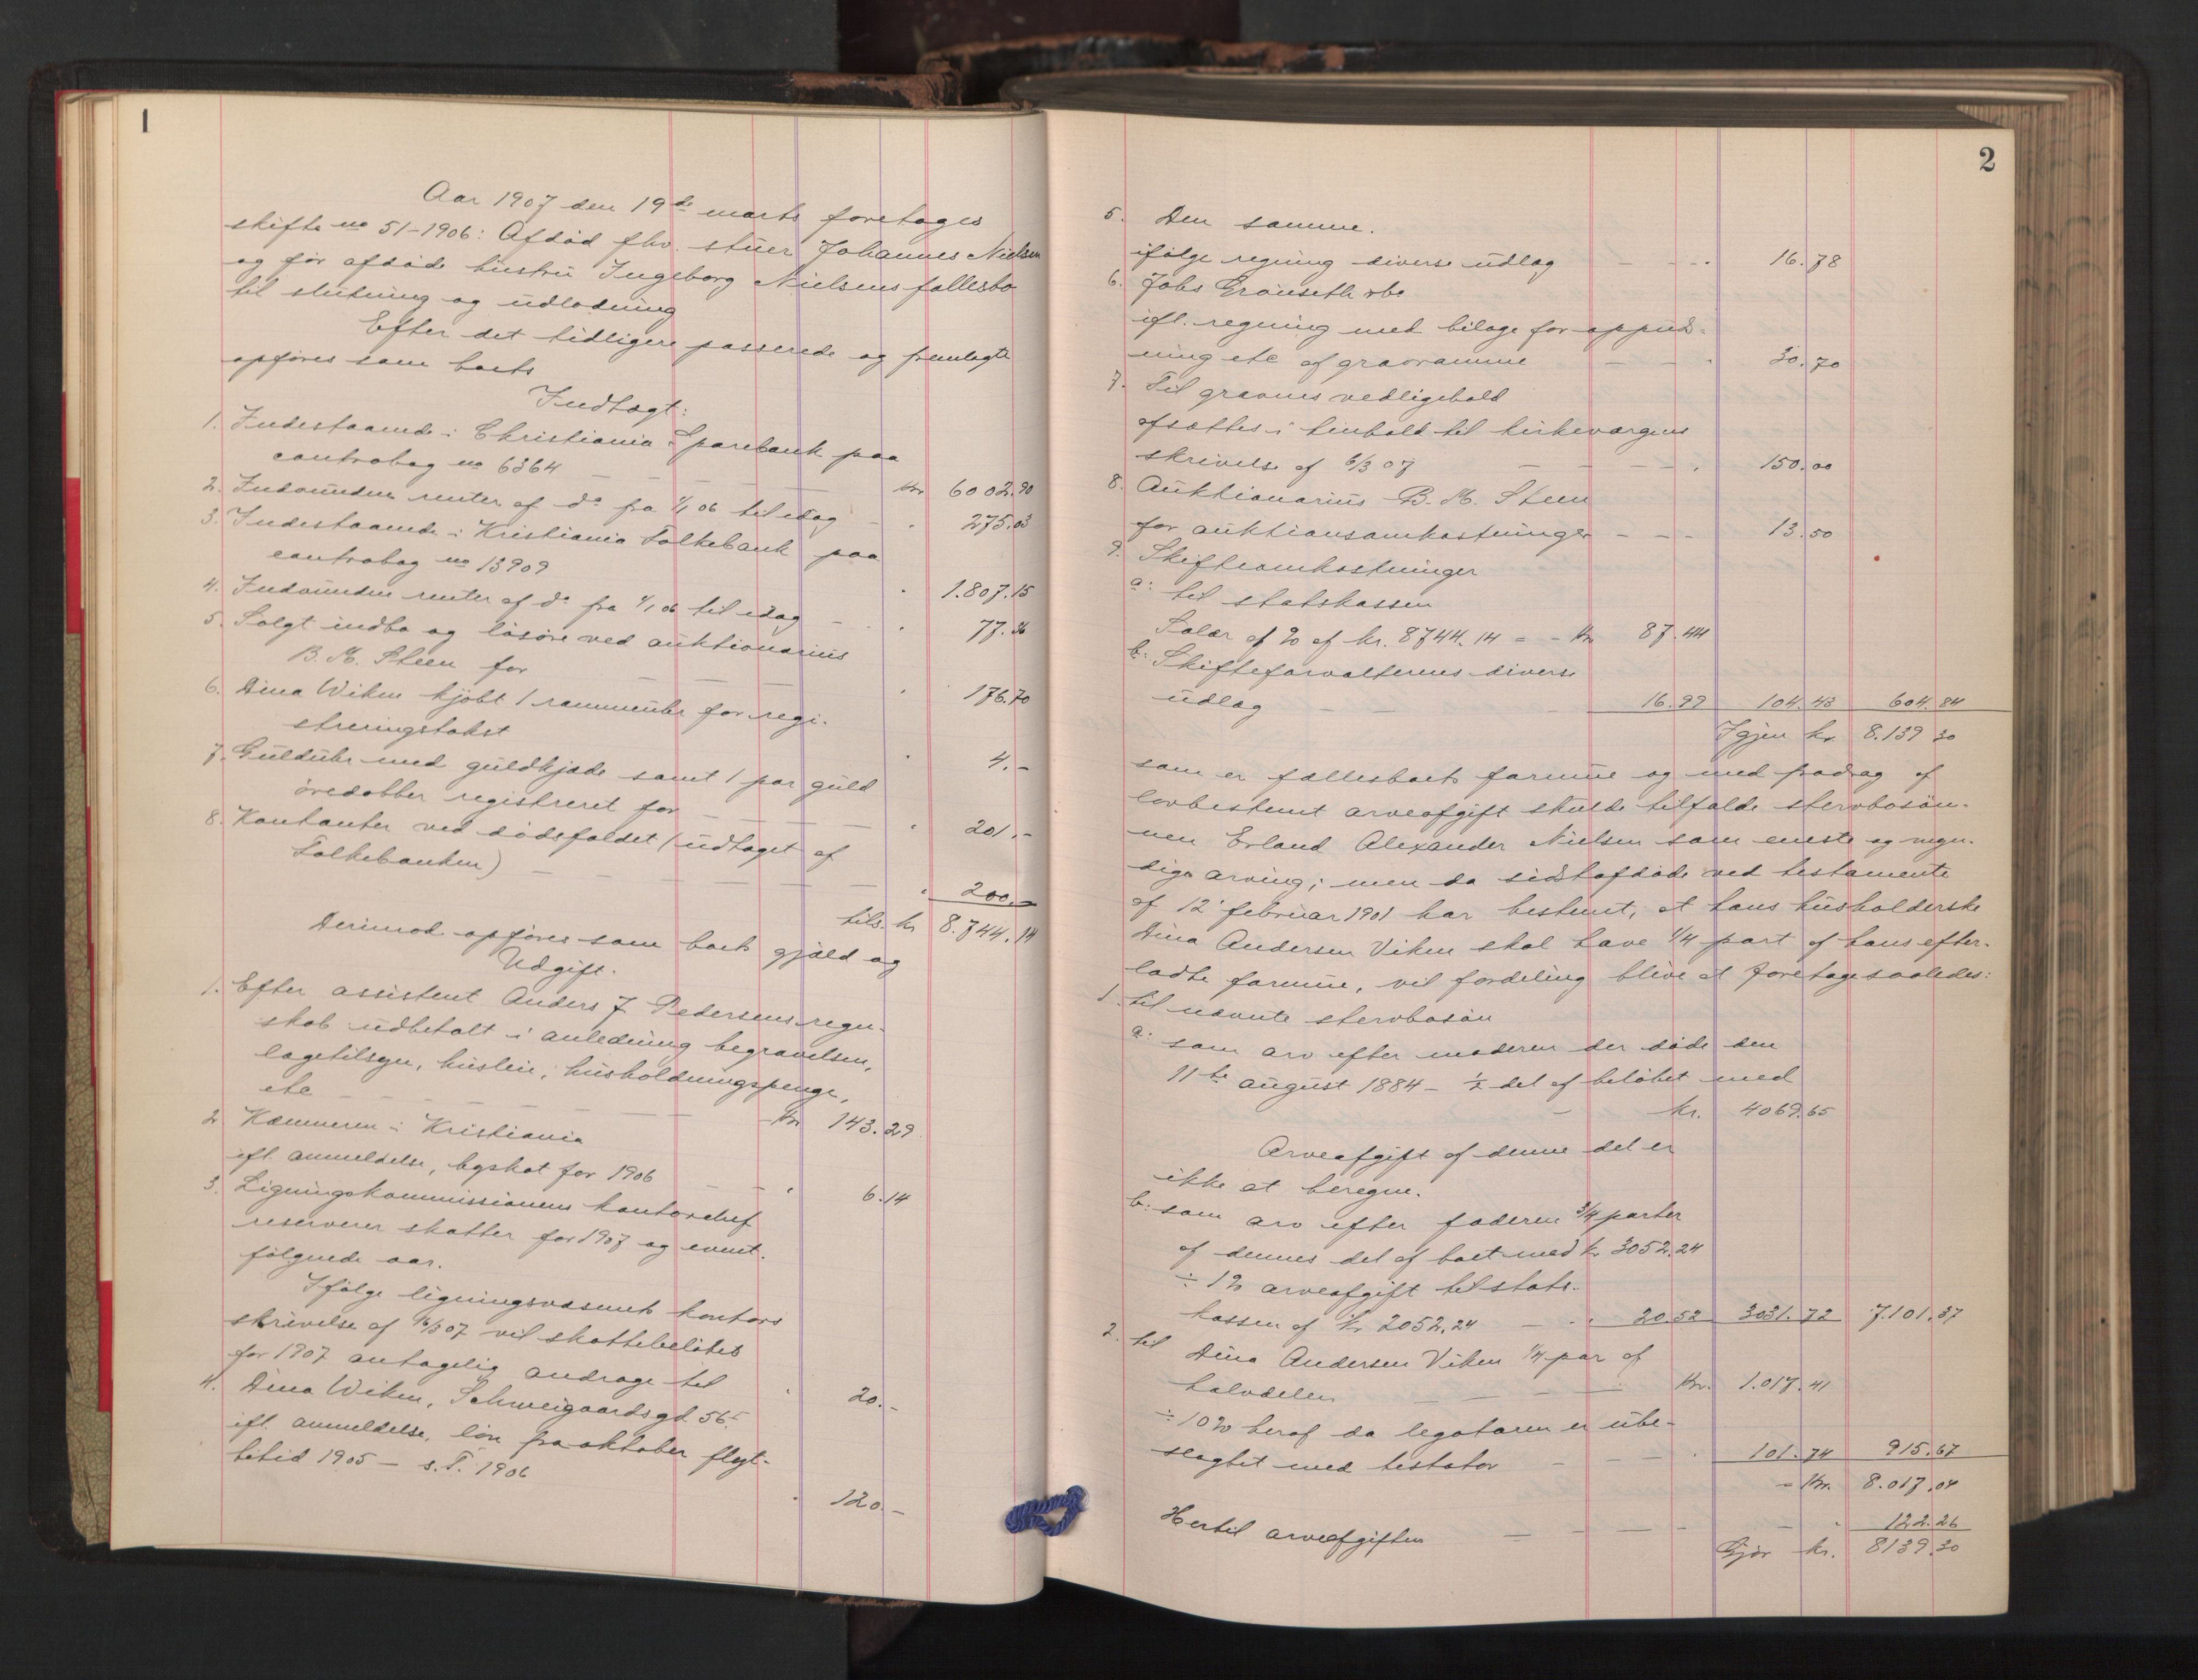 1
Aar 1907 den 19de marts foretoges
skifte no 51-1906: Afdød fhv. stuer Johannes Nielsen
og før afdøde hustru Ingeborg Nielsens fællesbo
til slutning og udlodning
Efter det tidligere passerede og fremlagte
opføres som boets
Indtægt:
1. Indestaaende i Christiania Sparebank paa
contrabog no 6364 — kr 6002.90
2. Indvundne renter af do fra 1/1 06 til idag - " 275.03
3. Indestaaende i Kristiania Folkebank paa
contrabog no 13909 " 1.807.15
4. Indvundne renter af do fra 1/1 06 til idag - " 77.36
5. Solgt indbo og løsøre ved auktionarius
B. M. Steen for — " 176.70
6. Dina Wiken kjøbt 1 rammeuhr for regi-
streringstakst " 4.-
7. Gulduhr med guldkjæde samt 1 par guld
øredobber registreret for — " 201.-
8. Kontanter ved dødsfaldet (udtaget af
Folkebanken) — " 200.-
tils. kr 8.744.14
Derimod opføres som boets gjæld og
Udgift.
1. Efter assistent Anders J. Pedersens regn-
skab udbetalt i anledning begravelsen,
lægetilsyn, husleie, husholdningspenge,
etc — kr 143.29
2 Kæmneren i Kristiania
ifl. anmeldelse, byskat for 1906 — " 6.14
3. Ligningskommissionens kontorchef
reserverer skatter for 1907 og event.
følgende aar.
Ifølge ligningsvæsenets kontors
skrivelse af 16/3 07 vil skattebeløbet
for 1907 antagelig andrage til " 20.-
4. Dina Wiken, Schweigaardsgd 56
ifl. anmeldelse, løn fra oktober flyt-
tetid 1905 - s.T. 1906 " 120.-
2
5. Den samme.
ifølge regning diverse udlæg — 16.78
6. Johs Grønseth &co
ifl. regning med bilage for oppuds-
ning etc af gravramme — 30.70
7. Til gravens vedligehold
afsættes i henhold til kirkeværgens
skrivelse af 6/3 07 — 150.00
8. Auktionarius B. M. Steen
for auktionsomkostninger — 13.50
9. Skifteomkostninger
a: til statskassen
Salær af % af kr. 8744.14 = - kr 87.44
b: Skifteforvalterens diverse
udlæg — 16.99 104.43 604.84
Igjen kr 8.139 30
som er fællesboets formue og med fradrag af
lovbestemt arveafgift skulde tilfalde stervbosøn-
nen Erland Alexander Nielsen som eneste og myn-
dige arving; men da sidstafdøde ved testamente
af 12' februar 1901 har bestemt, at hans husholderske
Dina Andersen Viken skal have 1/4 part af hans efter-
ladte formue, vil fordeling blive at foretage saaledes:
1. til nævnte stervbosøn
a: som arv efter moderen der døde den
11te august 1884 - 1/2 del af beløbet med
- kr. 4069.65
Arveafgift af denne del er
ikke at beregne.
b: som arv efter faderen 3/4 parter
af dennes del af boet med kr 3052.24
÷ 1% arveafgift til stats-
kassen af kr 2052.24 — 20.52 3031.72 7.101.37
2. til Dina Andersen Viken 1/4 par af
halvdelen — kr. 1.017.41
÷ 10% heraf da legataren er ube-
slægtet med testator — 101.74 915.67
= kr. 8.017.04
Hertil arveafgiften — " 122.26
Gjør kr. 8139.30